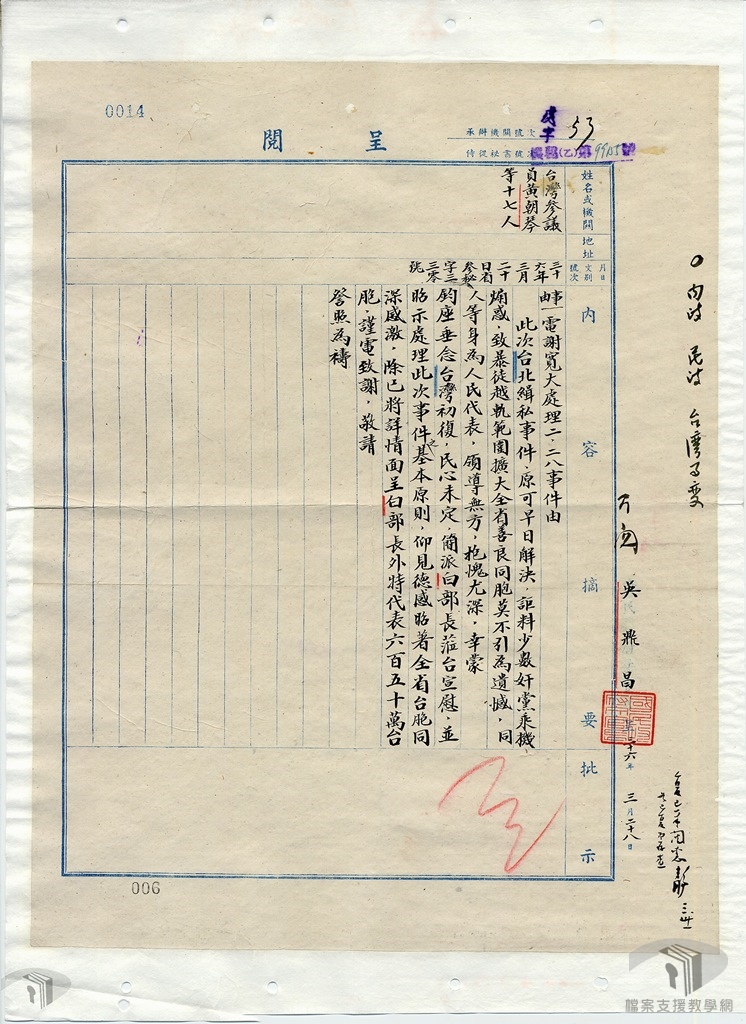 0014
呈閱
承辦機關號次
53
侍從秘書號次
(乙)第9905號
姓名或機關
地址
月日
文別
號次
內容摘要
批示
台灣參議
員黃朝琴
等十七人
三十
六年
三月
二十
日省
參秘
字三
三零
號
事一電謝寬大處理二、二八事件由
由
此次台北緝私事件，原可早日解決，詎料少數奸黨乘機
煽惑，致暴徒越軌範圍擴大全省善良同胞莫不引為遺憾，同
人等身為人民代表，領導無方，抱愧尤深，幸蒙
鈞座垂念台灣初復，民心未定，簡派白部長蒞台宣慰，並
昭示處理此次事件之基本原則，仰見德威昭著全省台胞同
深感激，除已將詳情面呈白部長外，特代表六百五十萬台
胞，謹電致謝，敬請
詧照為禱
吳鼎昌
三十六年
三月二十八日
台灣事變
006
檔案支援教學網